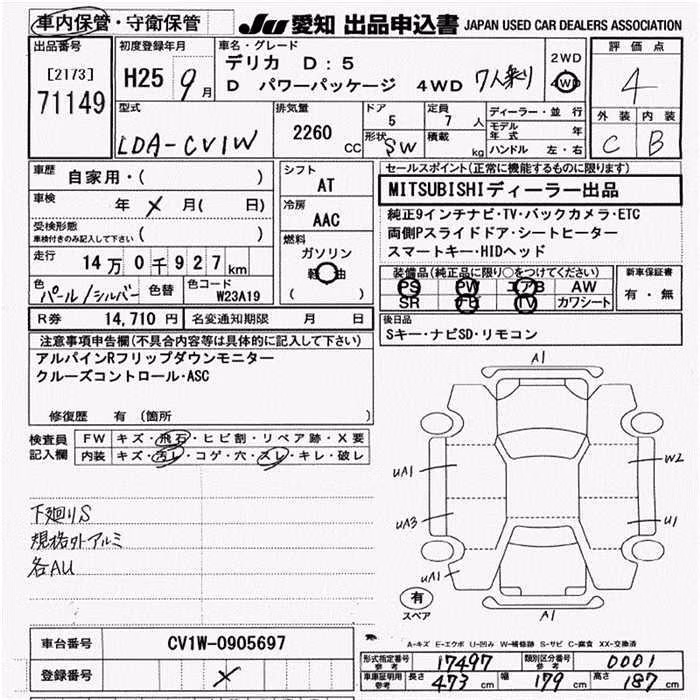 車内保管・守衛保管
JU 愛知 出品申込書 JAPAN USED CAR DEALERS ASSOCIATION
出品番号
[2173]
71149
初度登録年月
H25 9月
車名・グレード
デリカ D:5
D パワーパッケージ 4WD 7人乗り
2WD
4WD
評価点
4
外装 内装
C B
型式
LDA-CV1W
排気量
2260 CC
ドア
5
定員
7 人
形状 SW
積載 kg
ディーラー・並行
モデル年式 年
ハンドル 左・右
車歴
自家用・( )
車検
年 × 月( 日)
受検形態
車検付きのみ記入して下さい ( )
走行
14万0千927km
色 パール/シルバー 色替
色コード
W23A19
シフト
AT
冷房
AAC
燃料
ガソリン
軽油
( )
セールスポイント(正常に機能するものに限ります)
MITSUBISHIディーラー出品
純正9インチナビ・TV・バックカメラ・ETC
両側Pスライドドア・シートヒーター
スマートキー・HIDヘッド
装備品(純正品に限り○をつけてください)
PS PW エアB AW
SR ナビ TV カワシート
新車保証書
有・無
R券 14,710円 名変通知期限 月 日
後日品
Sキー・ナビSD・リモコン
注意事項申告欄(不具合内容等は具体的に記入して下さい)
アルパインRフリップダウンモニター
クルーズコントロール・ASC
修復歴 有(箇所 )
検査員記入欄
FW キズ・飛石・ヒビ割・リペア跡・X要
内装 キズ・汚レ・コゲ・穴・スレ・キレ・破レ
下廻りS
規格外アルミ
各AU
A1
UA1
W2
UA3
U1
UA1
A1
有
スペア
A-キズ E-エクボ U-凹み W-補修跡 S-サビ C-腐食 XX-交換済
車台番号 CV1W-0905697
登録番号 ×
形式指定番号 参考 17497 類別区分番号 参考 0001
車庫証明用 参考 長さ 473 cm 幅 179 cm 高さ 187 cm